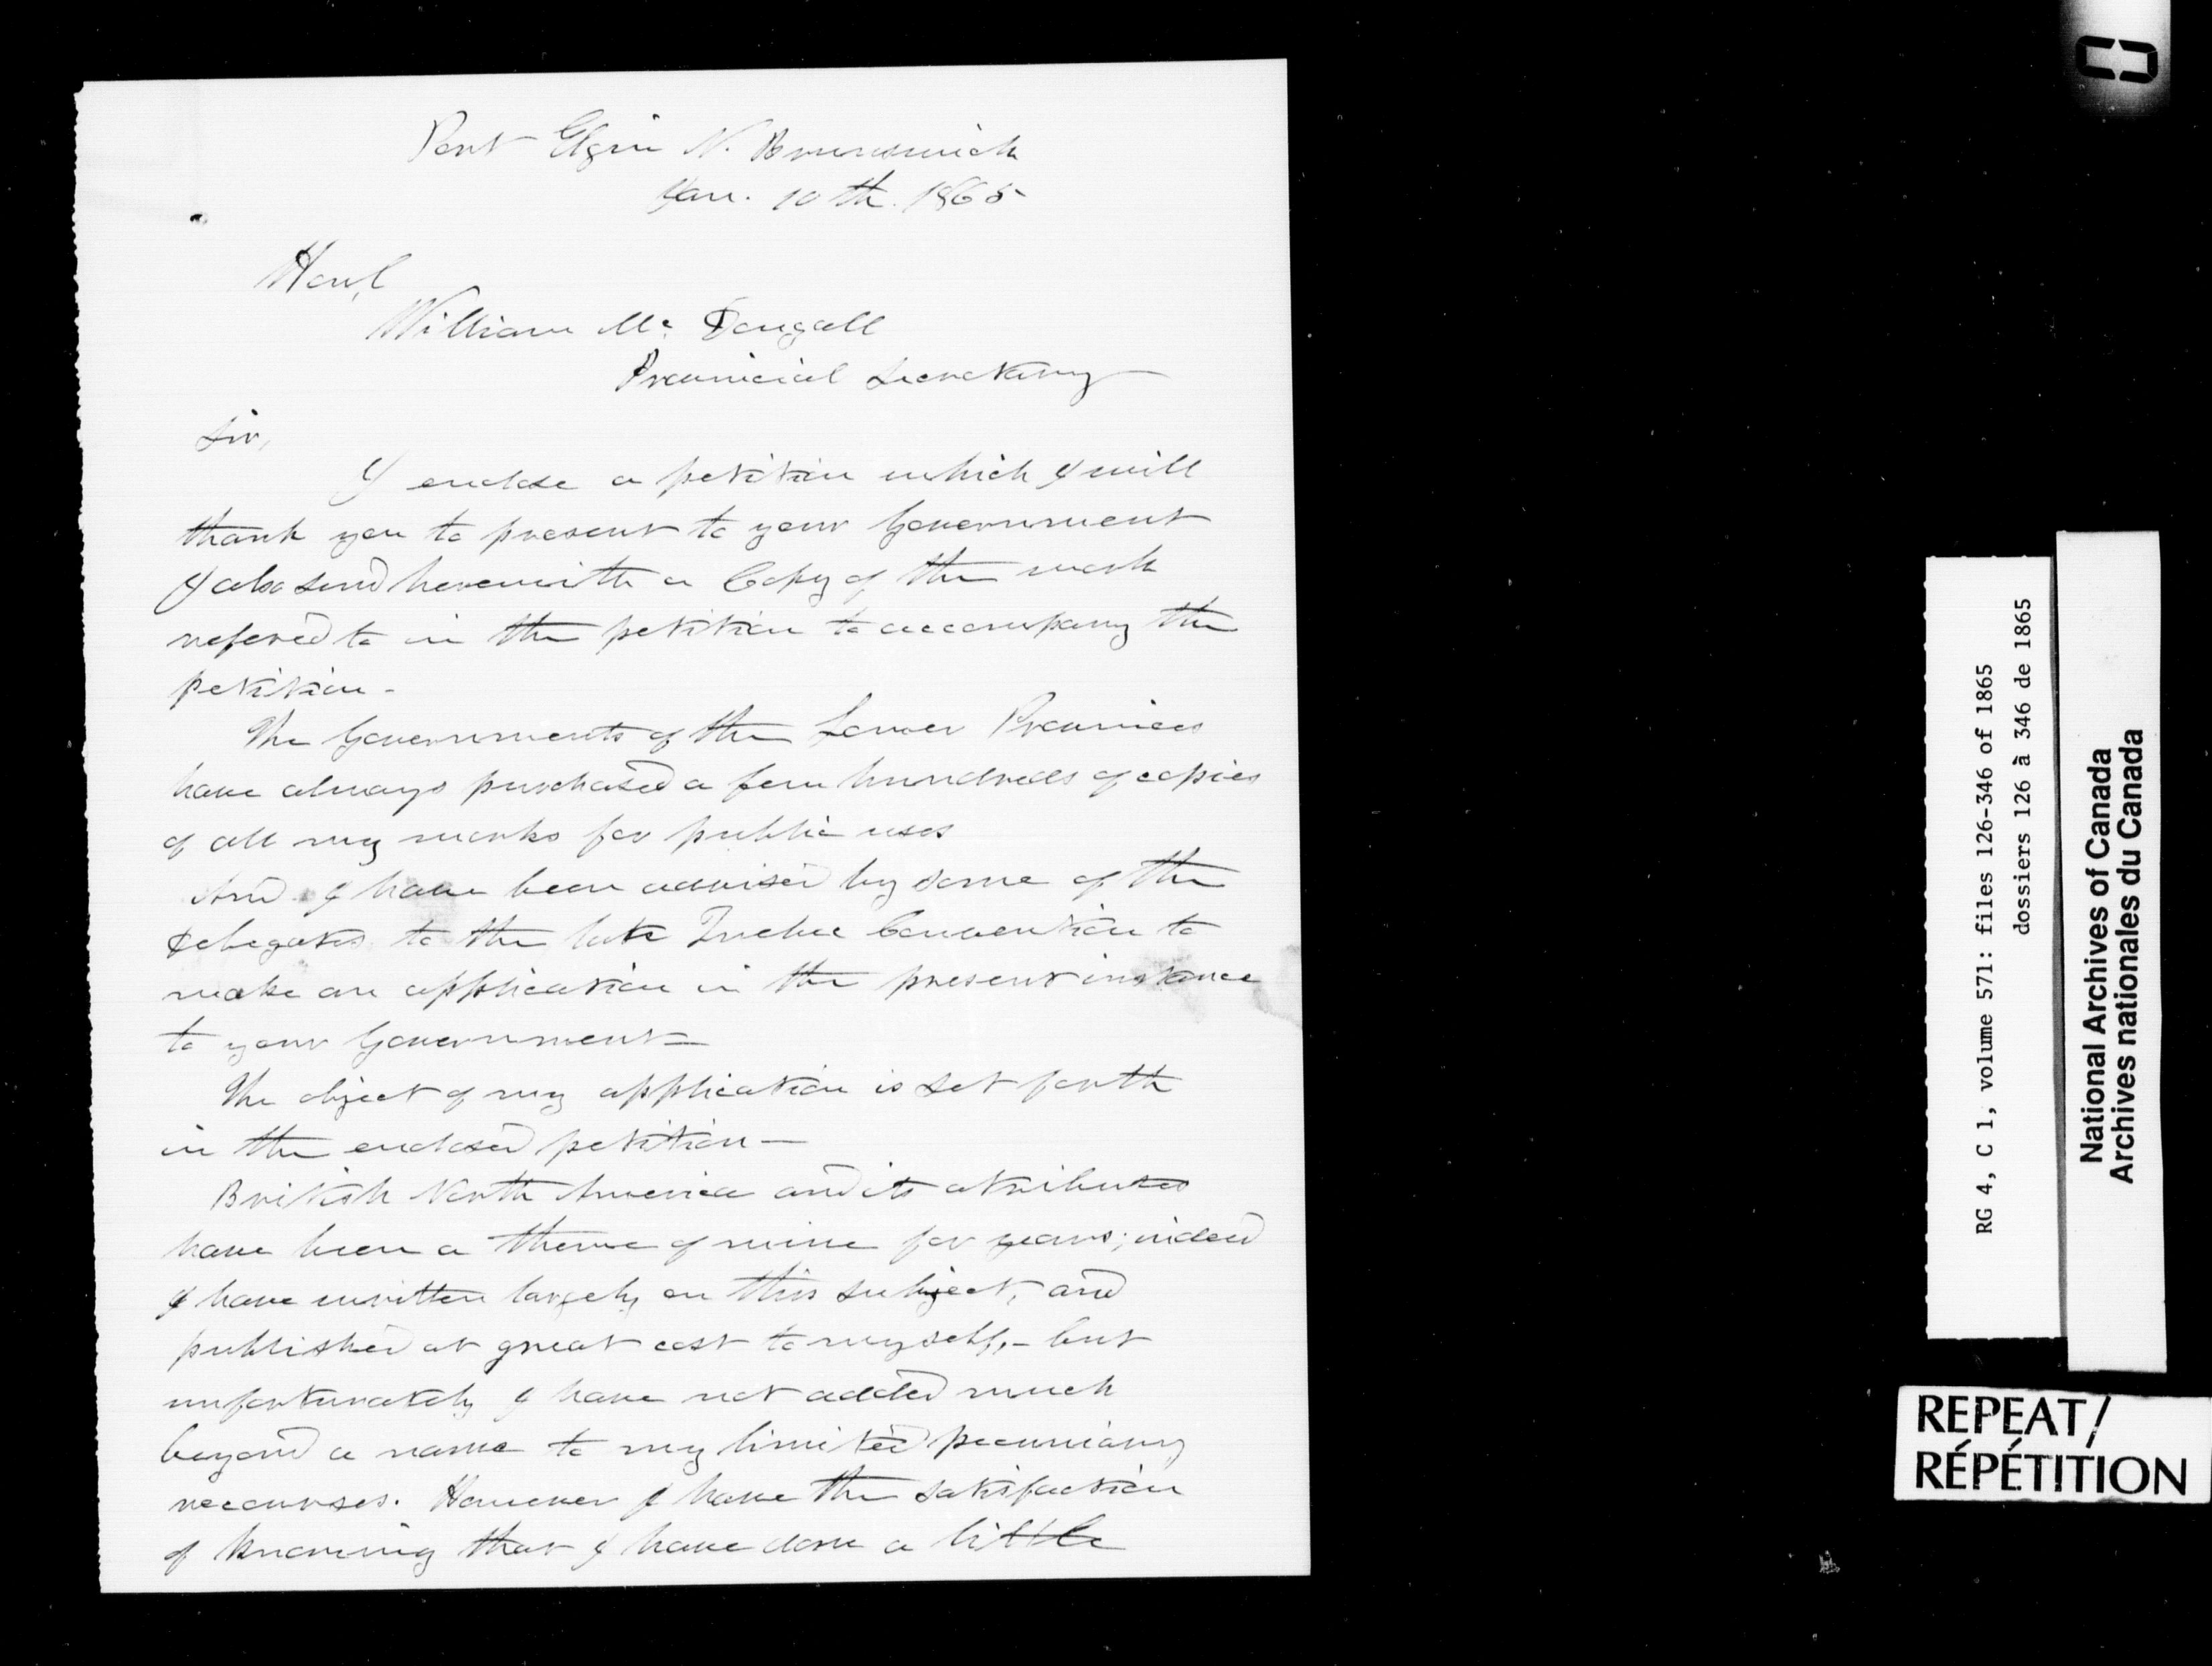 Port Elgin N. Brunswick
Jan. 10th. 1865
Honl
William Mc Dougall
Provincial Secretary
Sir,
I enclose a petition which I will
thank you to present to your Government
I also send herewith a Copy of the work
refered to in the petition to accompany the
petition -
The Governments of the Lower Provinces
have always purchased a few hundreds of copies
of all my works for public uses
And I have been advised by some of the
Delegates to the late Quebec Convention to
make an application in the present instance
to your Government -
The object of my application is set forth
in the enclosed petition -
British North America and its atributes
have been a theme of mine for years; indeed
I have written largely on this subject, and
published at great cost to myself, - but
unfortunately I have not added much
beyond a name to my limited pecuniary
recourses. However I have the satisfaction
of knowing that I have done a little
RG 4, C 1, volume 571: files 126-346 of 1865
dossiers 126 à 346 de 1865
National Archives of Canada
Archives nationales du Canada
REPEAT/
RÉPÉTITION